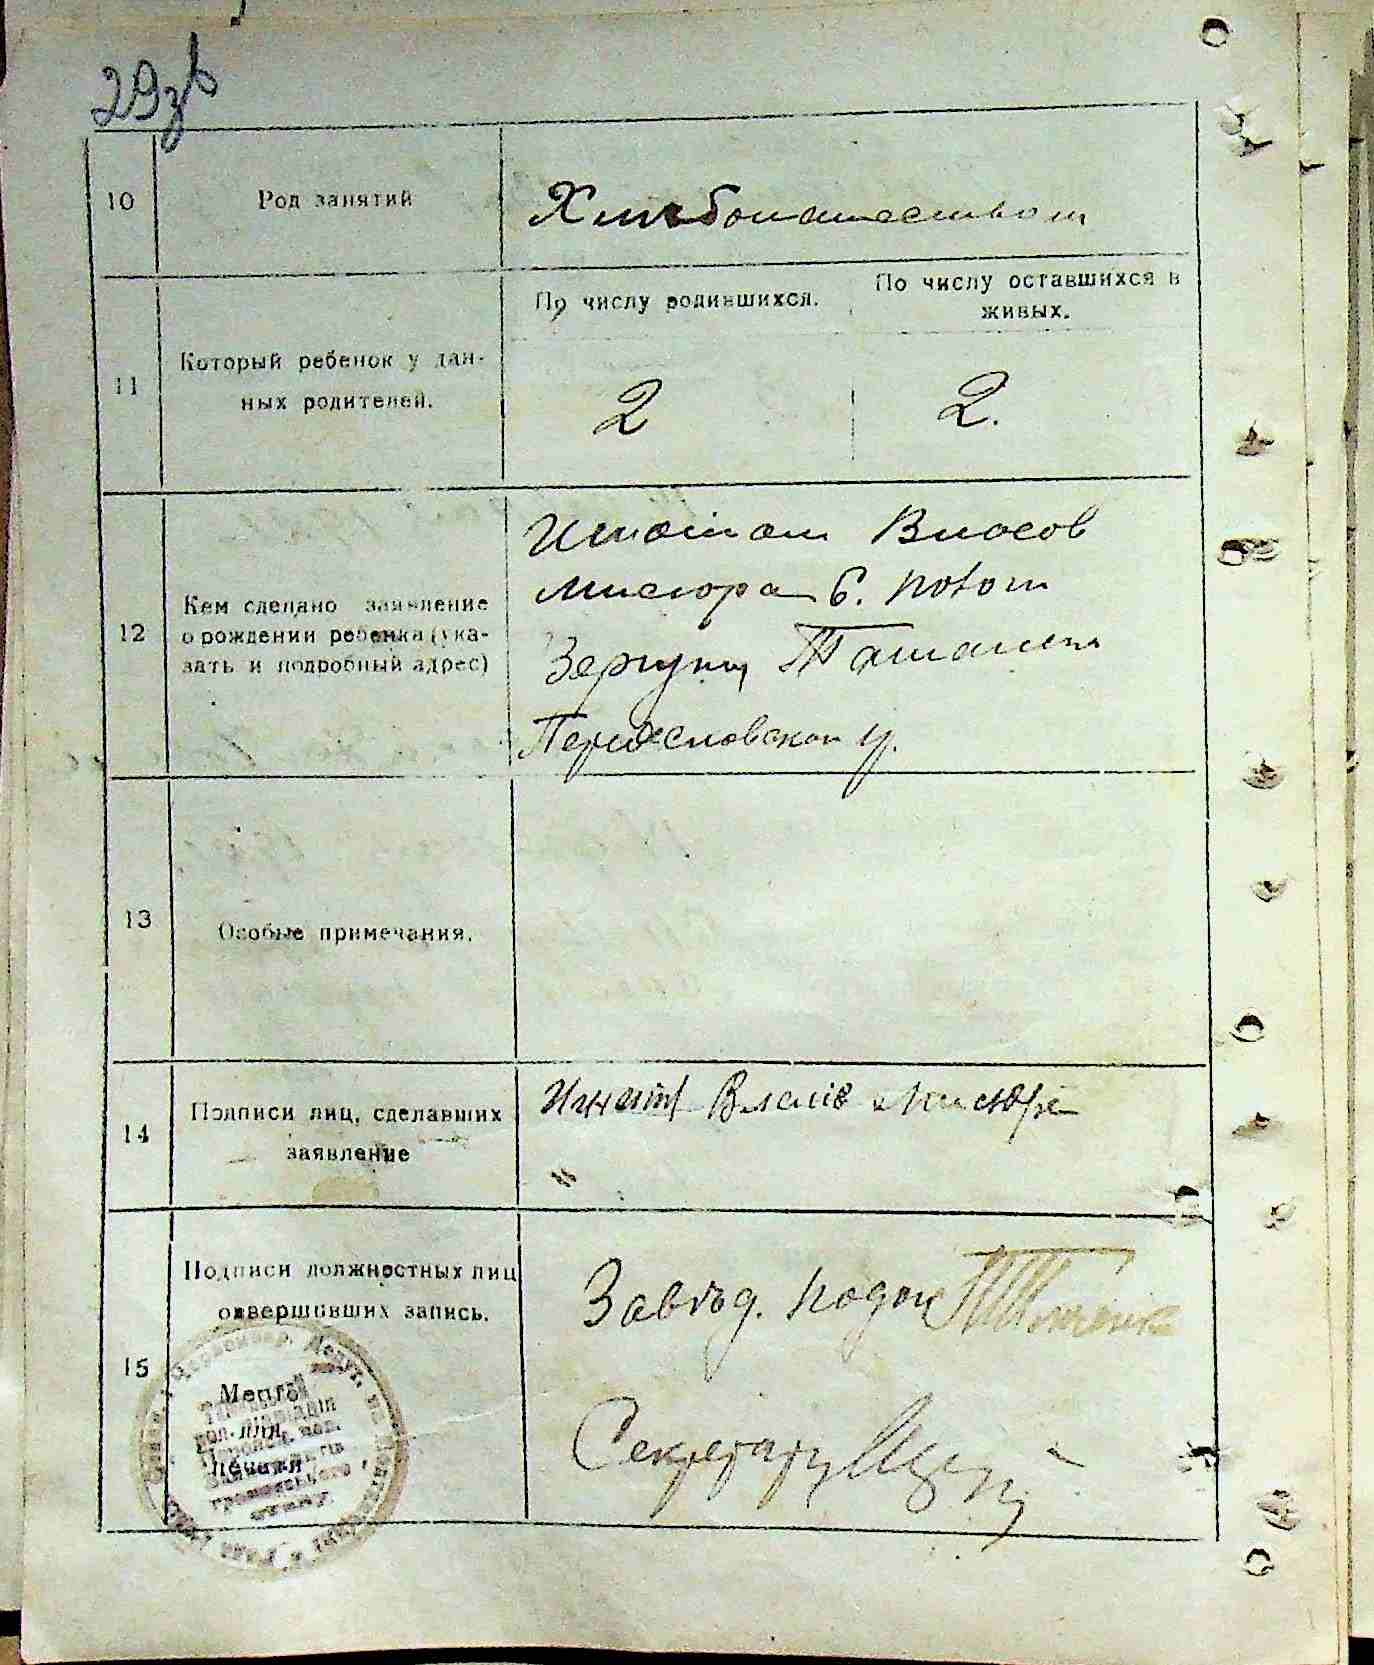 29зв
10
Род занятий
Хлѣбопашеством
11
Который ребенок у дан-
ных родителей.
По числу родившихся.
По числу оставшихся в
живых.
2
2.
12
Кем сделано заявление
о рождении ребенка (ука-
зать и подробный адрес)
Игнатом Власов
Мисюра
Переясловской у.
13
Особые примечания.
14
Подписи лиц, сделавших
заявление
Игнат Власів Мисюра
"
15
Подписи должностных лиц
совершивших запись.
Место
для
печати
Завѣд. подот
Секретарь